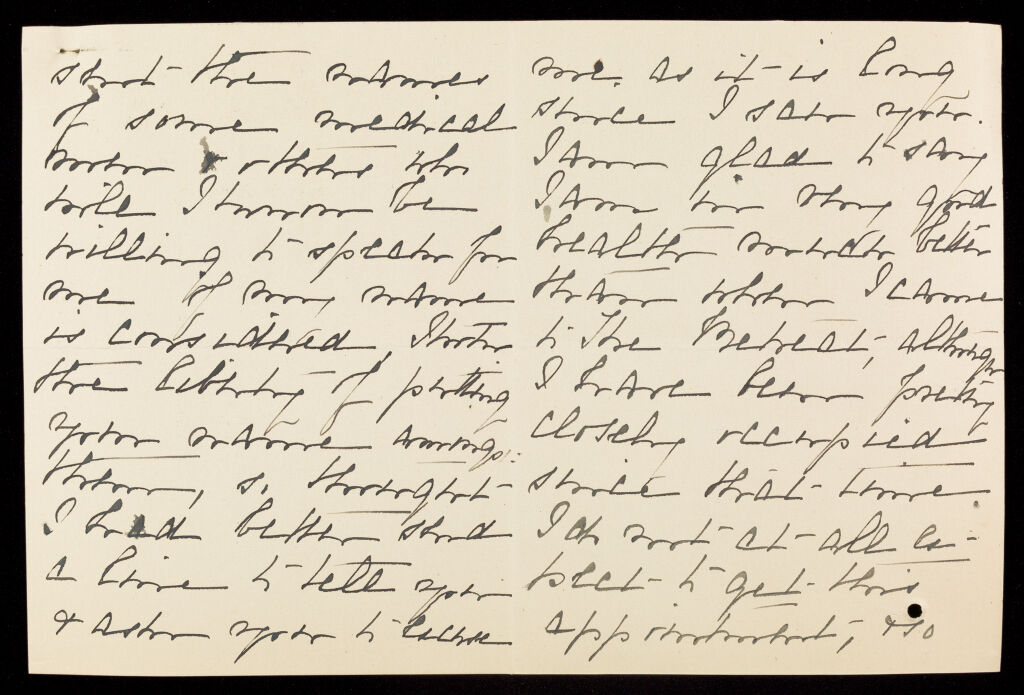 sent the names
of some medical
men & others who
will I know be
willing to speak for
me if my name
is considered. I took
the liberty of putting
your name amongst
them, so thought
I had better send
a line to tell you
& ask you to excuse
me. as it is long
since I saw you.
I am glad to say
I am in very good
health much better
than when I came
to The Retreat, although
I have been pretty
closely occupied
since that time.
I do not at all ex-
pect to get this
appointment, & so